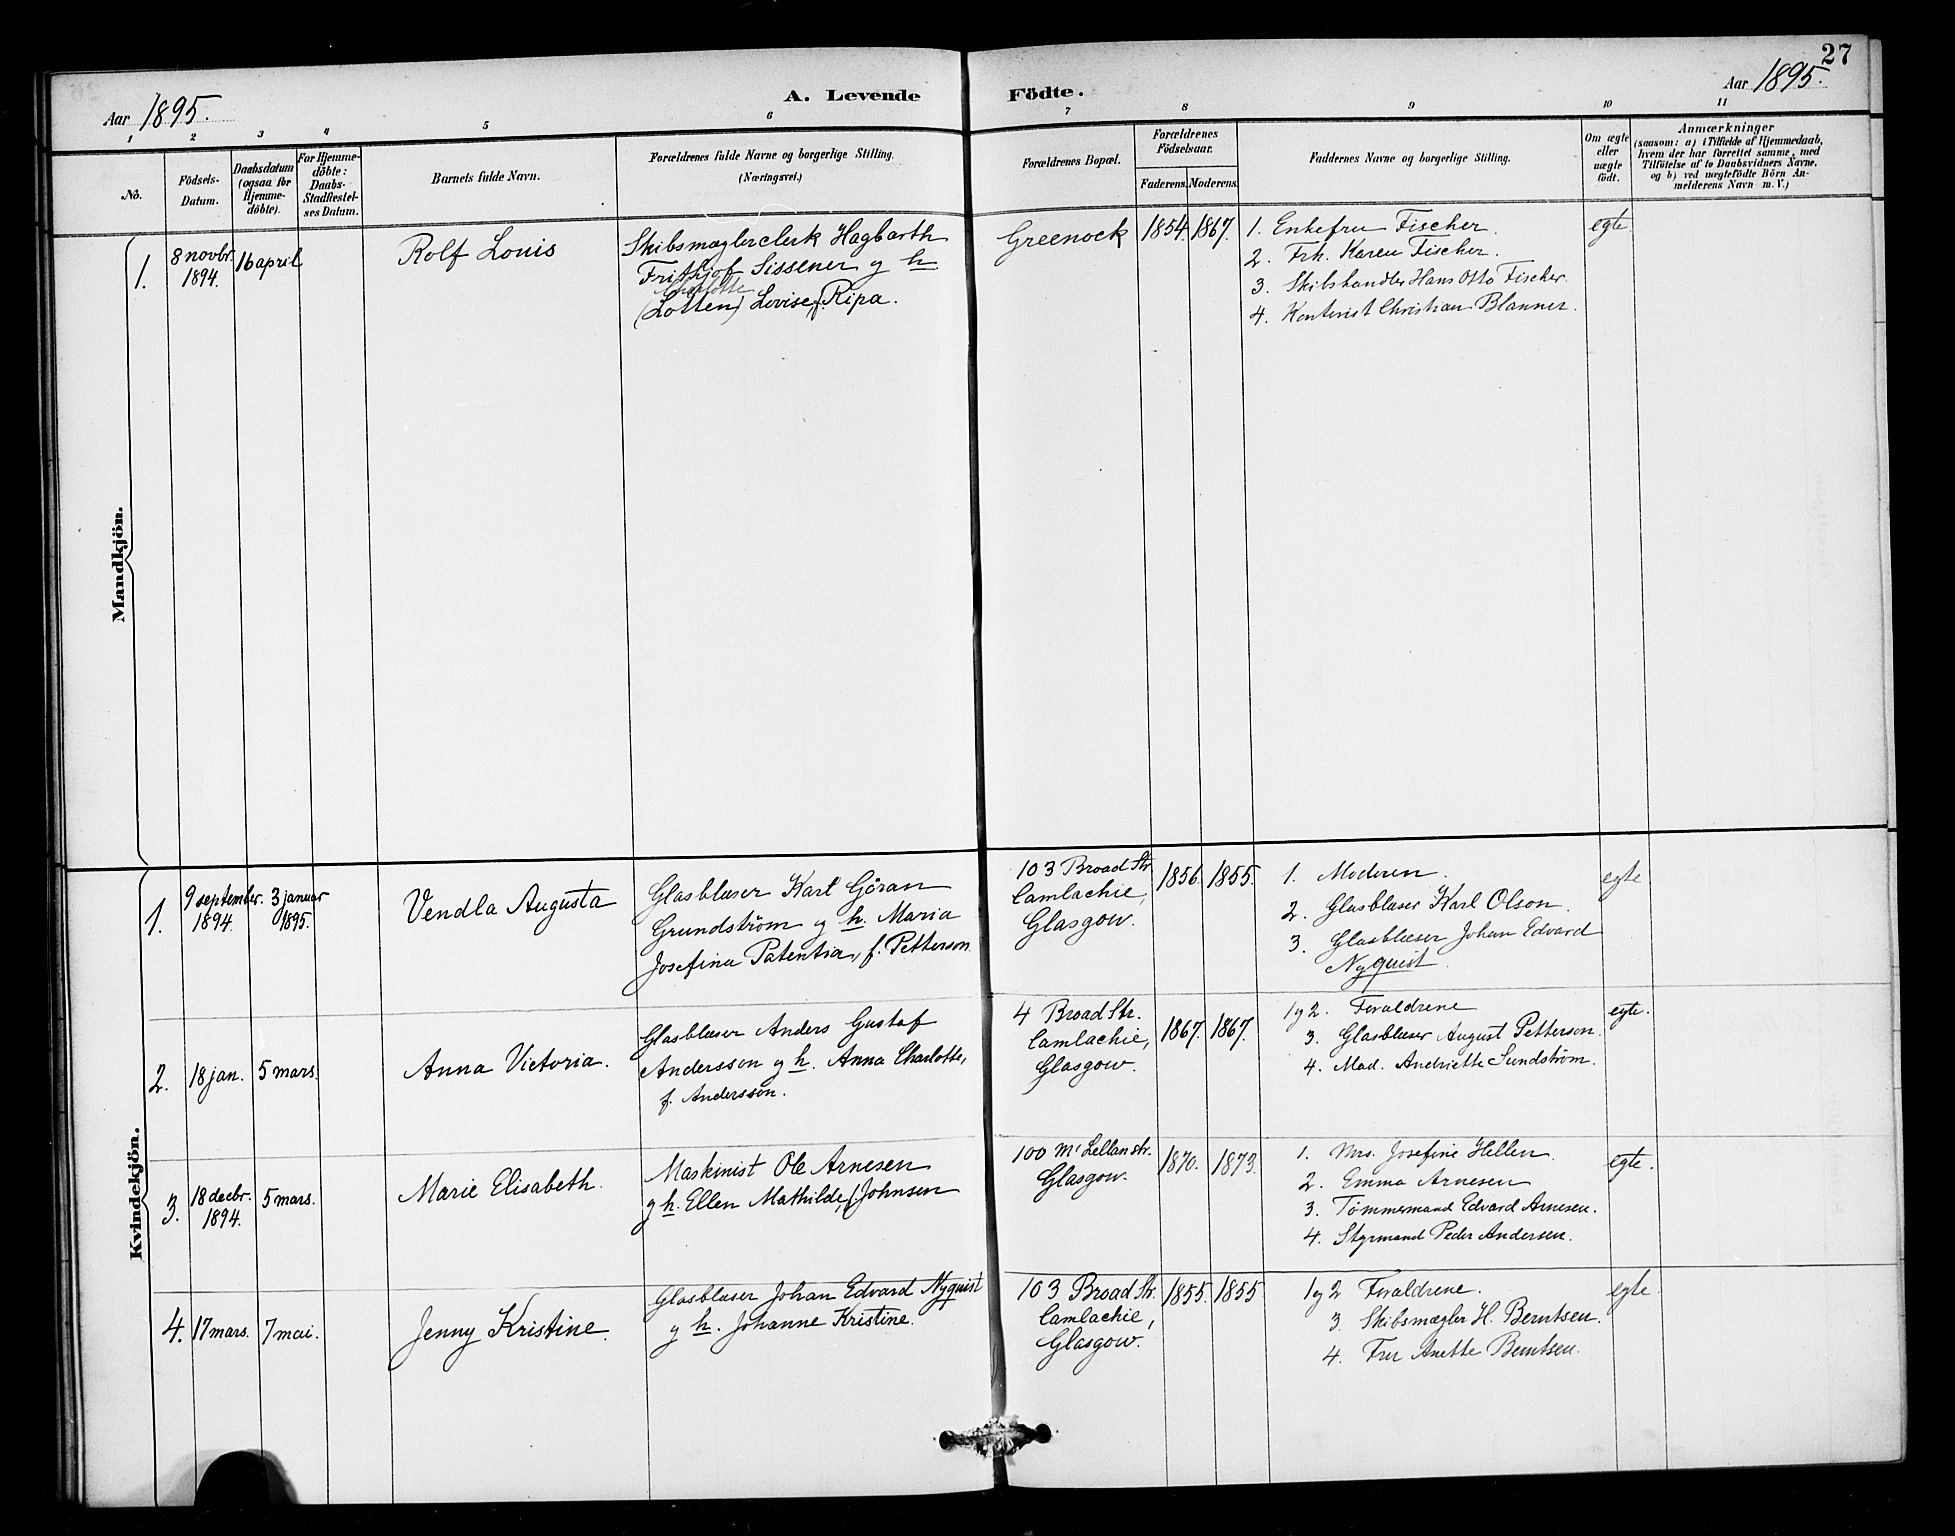 27
Aar 1895.
A. Levende Födte.
Aar 1895.
1 2 3 4 5 6 7 8 9 10 11
No.
Födsels-
Datum.
Daabsdatum
(ogsaa for
Hjemme-
döbte).
For Hjemme-
döbte:
Daabs-
Stadfæstel-
ses Datum.
Barnets fulde Navn.
Forældrenes fulde Navne og borgerlige Stilling.
(Næringsvei.)
Forældrenes Bopæl.
Forældrenes
Födselsaar.
Faderens. Moderens.
Faddernes Navne og borgerlige Stilling.
Om ægte
eller
uægte
födt.
Anmærkninger
(saasom: a) i Tilfælde af Hjemmedaab,
hvem der har forrettet samme, med
Tilföielse af to Daabsvidners Navne,
og b) ved uægtefödte Börn An-
melderens Navn m. V.)
Mandkjön.
1.
8 novbr.
1894.
16 april
Rolf Louis
Skibsmæglerclerk Hagbarth
Frithjof Sissener og h
Charlotte
(Lotten) Lovise, f. Ripa.
Greenock
1854. 1867.
1. Enkefru Fischer.
2. Frk. Karen Fischer.
3. Skibshandler Hans Otto Fischer.
4. Kontorist Christian Blanner.
egte
Kvindekjön.
1.
9 september.
1894.
3 januar
1895.
Vendla Augusta
Glasblæser Karl Göran
Grundström og h. Maria
Josefina Patentia, f. Petterson.
103 Broad Str.
Camlachie,
Glasgow.
1856. 1855.
1. Moderen.
2. Glasblæser Karl Olson.
3. Glasblæser Johan Edvard
Nyquist.
egte
2.
18 jan.
5 mars.
Anna Victoria.
Glasblæser Anders Gustaf
Andersson og h. Anna Charlotte,
f. Andersson.
4 Broad Str.
Camlachie,
Glasgow.
1867. 1867.
1 og 2. Forældrene
3. Glasblæser August Petterson.
4. Mad. Andriette Sundström.
egte.
3.
18 decbr.
1894.
5 mars.
Marie Elisabeth.
Maskinist Ole Arnesen
og h. Ellen Mathilde, f. Johnsen
100 McLellan str.
Glasgow.
1870. 1873.
1. Mrs. Josefine Hellen.
2. Emma Arnesen
3. Tömmermand Edvard Arnesen.
4. Styrmand Peder Andersen.
egte.
4.
17 mars.
7 mai.
Jenny Kristine.
Glasblæser Johan Edvard Nyquist
og h. Johanne Kristine.
103 Broad Str.
Camlachie,
Glasgow.
1855. 1855
1 og 2 Forældrene.
3. Skibsmægler H. Berntsen.
4. Fru Anette Berntsen.
egte.